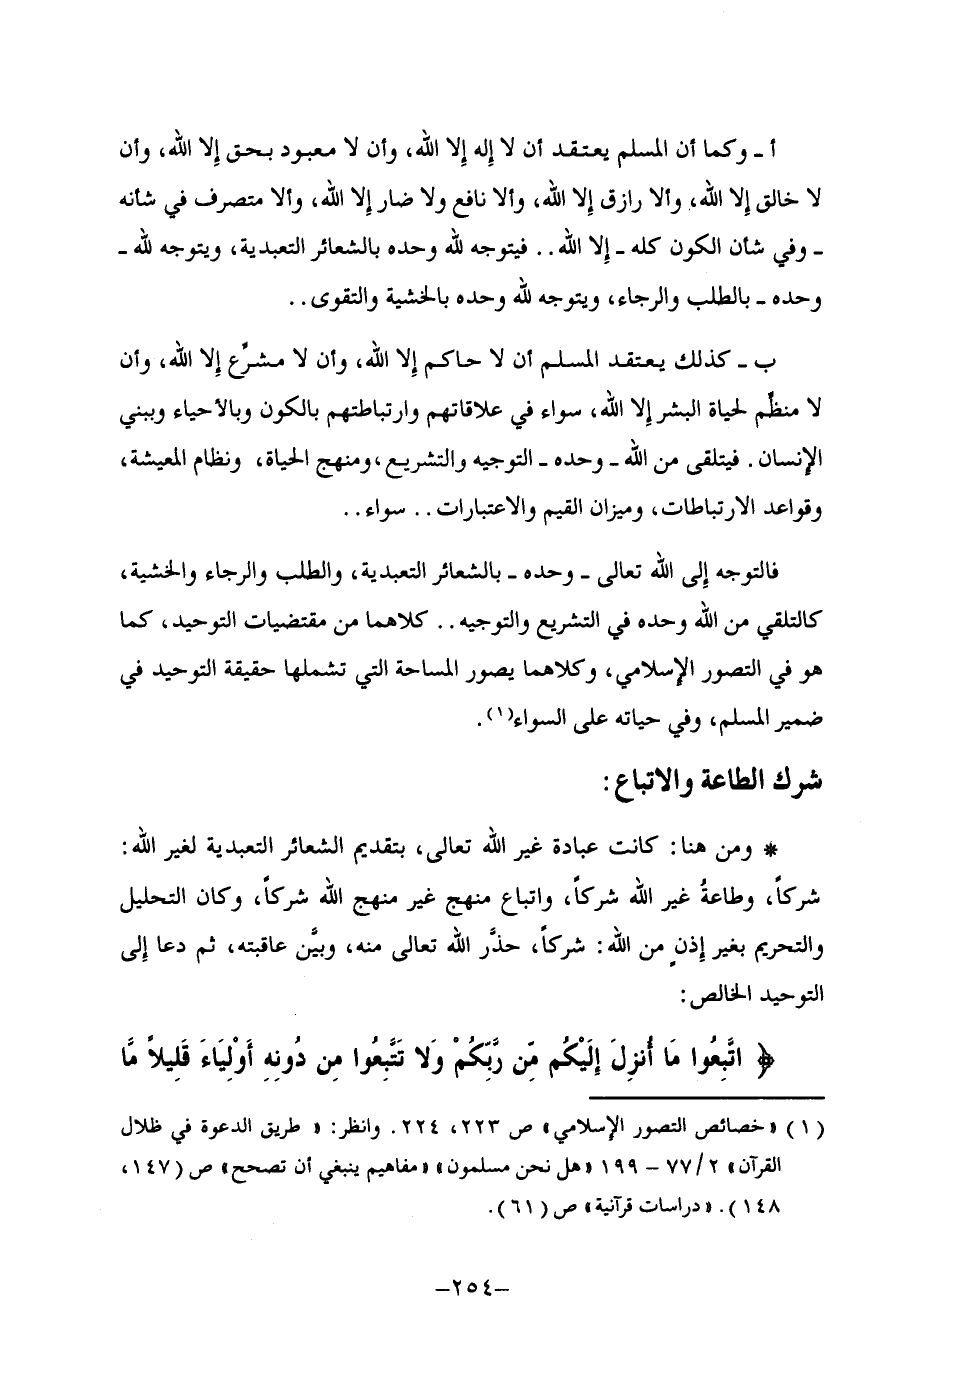 أ ـ وكما أن المسلم يعتقد أن لا إله إلا الله، وأن لا معبود بحق إلا الله، وأن
لا خالق إلا الله، وألا رازق إلا الله، وألا نافع ولا ضار إلا الله، وألا متصرف في شأنه
ـ وفي شأن الكون كله ـ إلا الله.. فيتوجه لله وحده بالشعائر التعبدية، ويتوجه لله ـ
وحده ـ بالطلب والرجاء، ويتوجه لله وحده بالخشية والتقوى..
ب ـ كذلك يعتقد المسلم أن لا حاكم إلا الله، وأن لا مشرِّع إلا الله، وأن
لا منظِّم لحياة البشر إلا الله، سواء في علاقاتهم وارتباطتهم بالكون وبالأحياء وببني
الإنسان. فيتلقى من الله ـ وحده ـ التوجيه والتشريع، ومنهج الحياة، ونظام المعيشة،
وقواعد الارتباطات، وميزان القيم والاعتبارات.. سواء..
فالتوجه إلى الله تعالى ـ وحده ـ بالشعائر التعبدية، والطلب والرجاء والخشية،
كالتلقي من الله وحده في التشريع والتوجيه.. كلاهما من مقتضيات التوحيد، كما
هو في التصور الإسلامي، وكلاهما يصور المساحة التي تشملها حقيقة التوحيد في
ضمير المسلم، وفي حياته على السواء(١).
شرك الطاعة والاتباع:
* ومن هنا: كانت عبادة غير الله تعالى، بتقديم الشعائر التعبدية لغير الله:
شركاً، وطاعةُ غير الله شركاً، واتباع منهج غير منهج الله شركاً، وكان التحليل
والتحريم بغير إذنٍ من الله: شركاً، حذَّر الله تعالى منه، وبيَّن عاقبته، ثم دعا إلى
التوحيد الخالص:
﴿ اتَّبِعُوا مَا أُنزِلَ إِلَيْكُم مِّن رَّبِّكُمْ وَلا تَتَّبِعُوا مِن دُونِهِ أَوْلِيَاءَ قَلِيلاً مَّا
(١) «خصائص التصور الإسلامي» ص ٢٢٣، ٢٢٤. وانظر: « طريق الدعوة في ظلال
القرآن» ٢/ ٧٧ – ١٩٩ «هل نحن مسلمون» «مفاهيم ينبغي أن تصحح» ص (١٤٧،
١٤٨). «دراسات قرآنية» ص (٦١).
–٢٥٤–